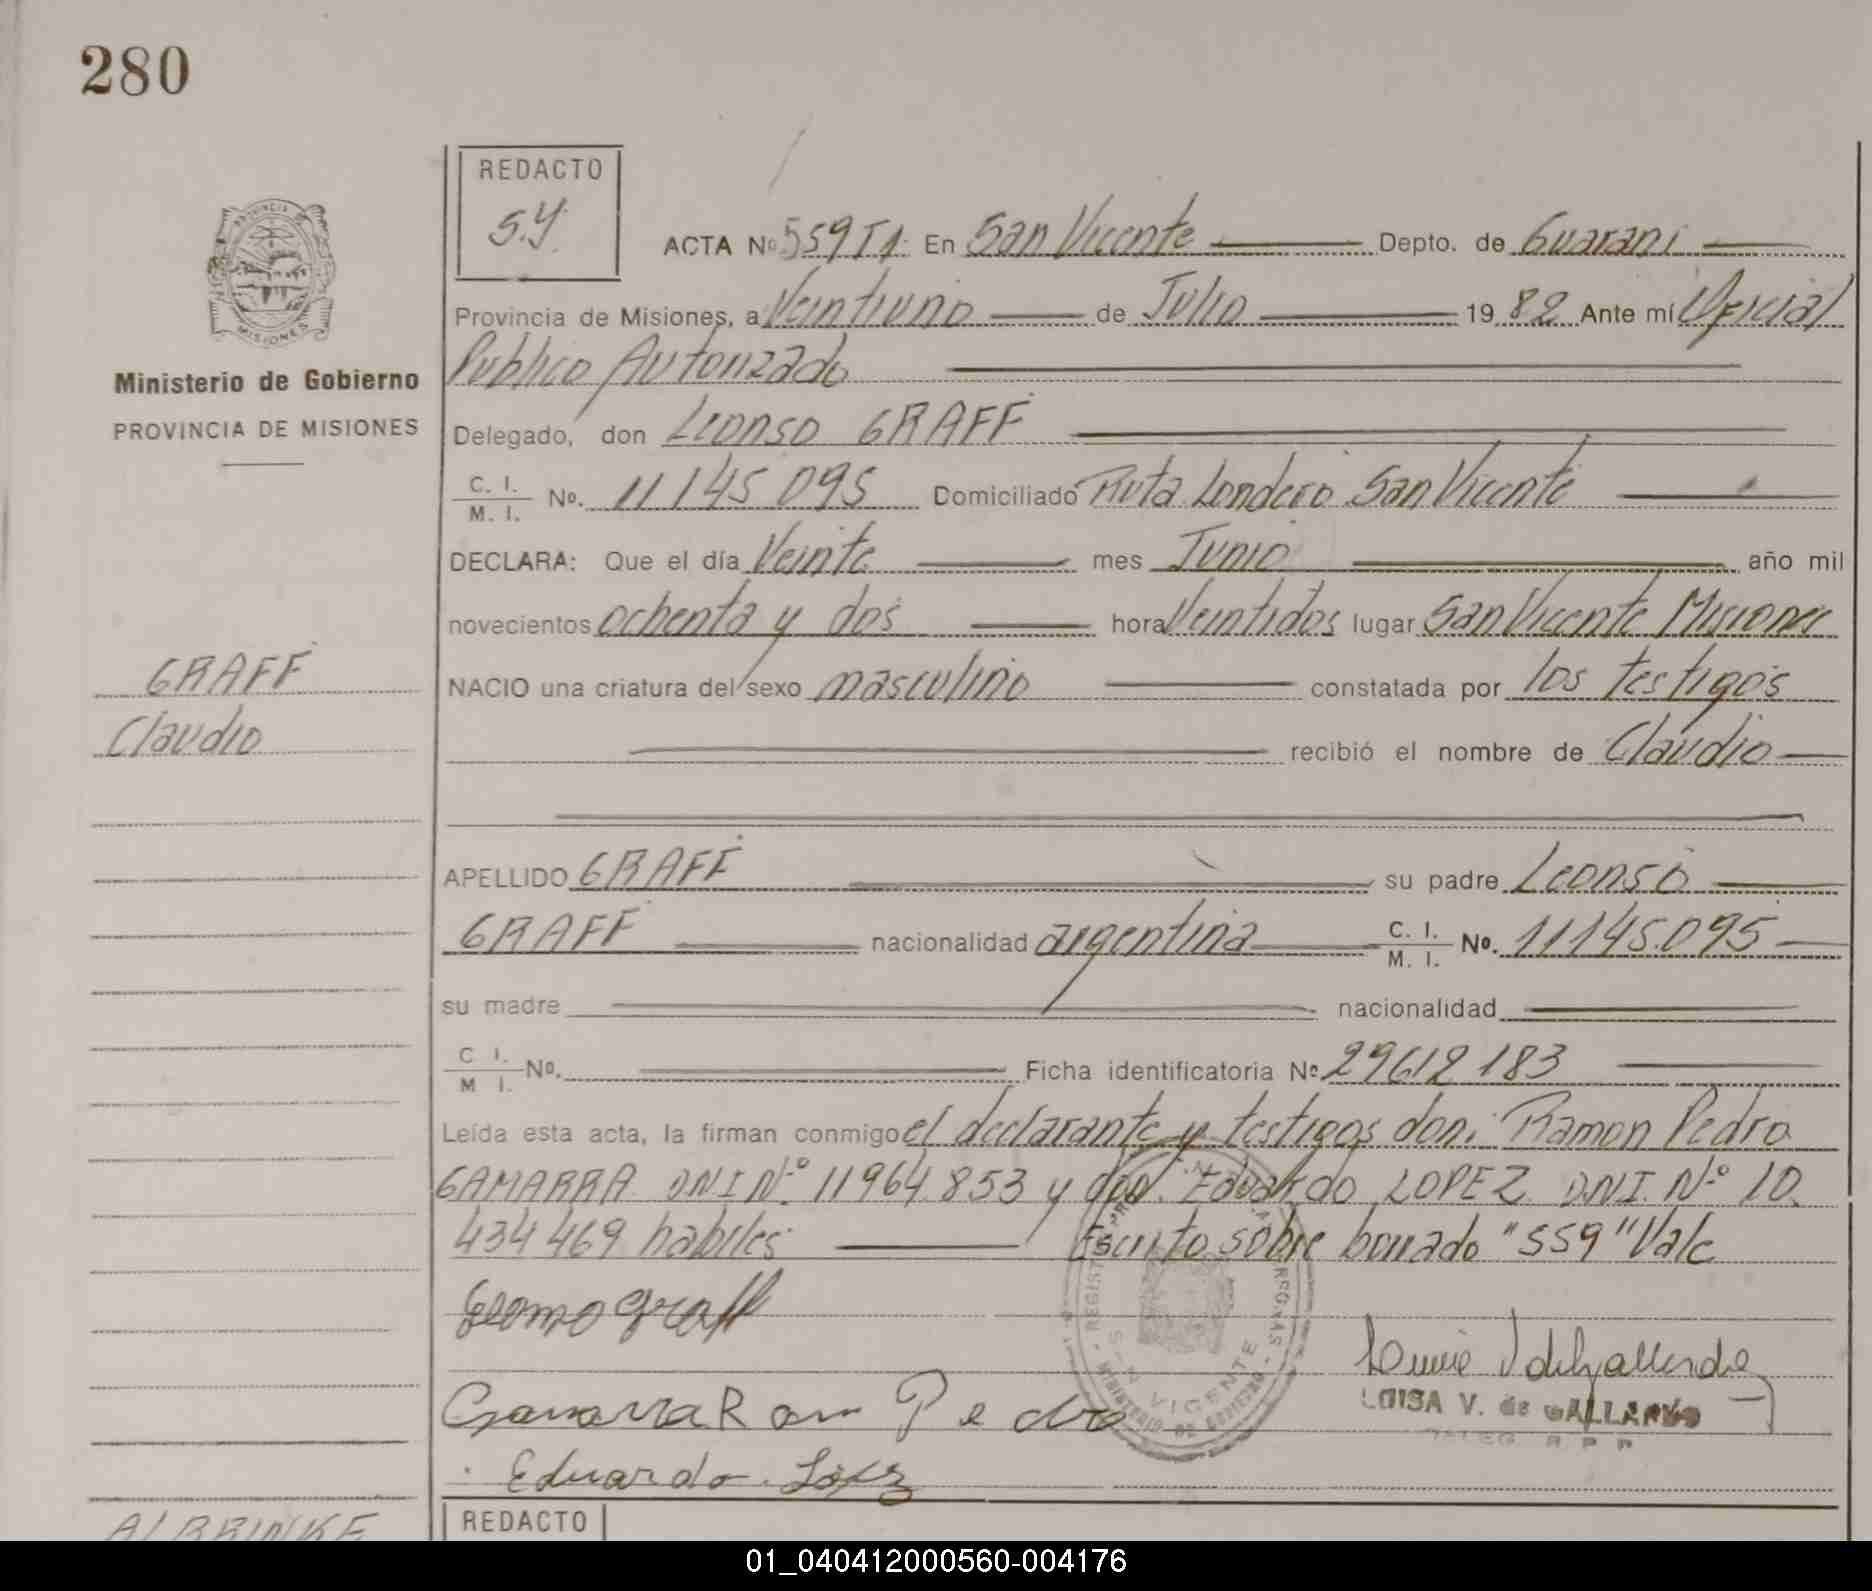 280
REDACTO
S.Y.
ACTA Nº 559 T1. En San Vicente Depto. de Guaraní
Provincia de Misiones, a Veintiuno de Julio 1982 Ante mí Oficial
Público Autorizado
Ministerio de Gobierno
PROVINCIA DE MISIONES
Delegado, don Leonso GRAFF
C. I. M. I. No. 11 145 095 Domiciliado Ruta Londero San Vicente
DECLARA: Que el día Veinte mes Junio año mil
novecientos ochenta y dos hora Veintidos lugar San Vicente Misiones
GRAFF
Claudio
NACIO una criatura del sexo masculino constatada por los testigos
recibió el nombre de Claudio
APELLIDO GRAFF su padre Leonso
GRAFF nacionalidad argentina C. I. M. I. No. 11145.095
su madre nacionalidad
C I. M I. No. Ficha identificatoria Nº 29612 183
Leída esta acta, la firman conmigo el declarante y testigos don: Ramon Pedro
GAMARRA DNI Nº 11964.853 y don. Eduardo LOPEZ D.N.I. Nº 10.
434 469 habiles Escrito sobre borrado "559" Vale
Gamarra Ram Pedro
LUISA V. de GALLARDO
Eduardo López
SAN VICENTE
MINISTERIO DE GOBIERNO
REDACTO
ALBRINKE
01_040412000560-004176